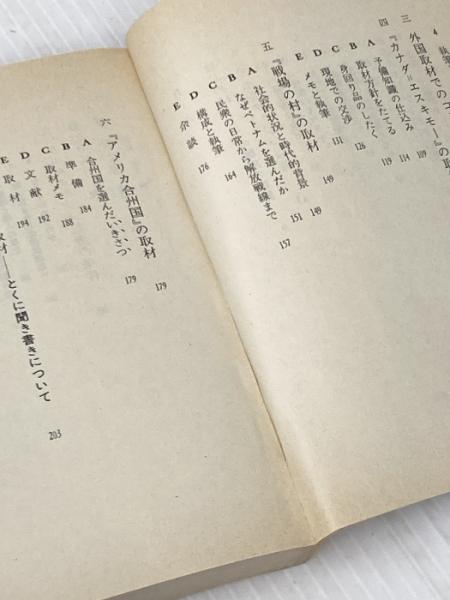 4 執筆
三 外国取材でのコ
四 『カナダ=エスキモー』の取
A 予備知識の仕込み 109
B 取材方針をたてる 114
C 身回り品のしたく 119
D 現地での交渉 126
E メモと執筆 131
五 『戦場の村』の取材 149
A 社会的状況と時代的背景 149
B なぜベトナムを選んだか 151
C 民衆の日常から解放戦線まで 157
D 構成と執筆 164
E 余談 176
六 『アメリカ合州国』の取材 179
A 合州国を選んだいきさつ 179
B 準備 184
C 取材メモ 192
D 文献 194
E 取材
取材——とくに聞き書きについて 203